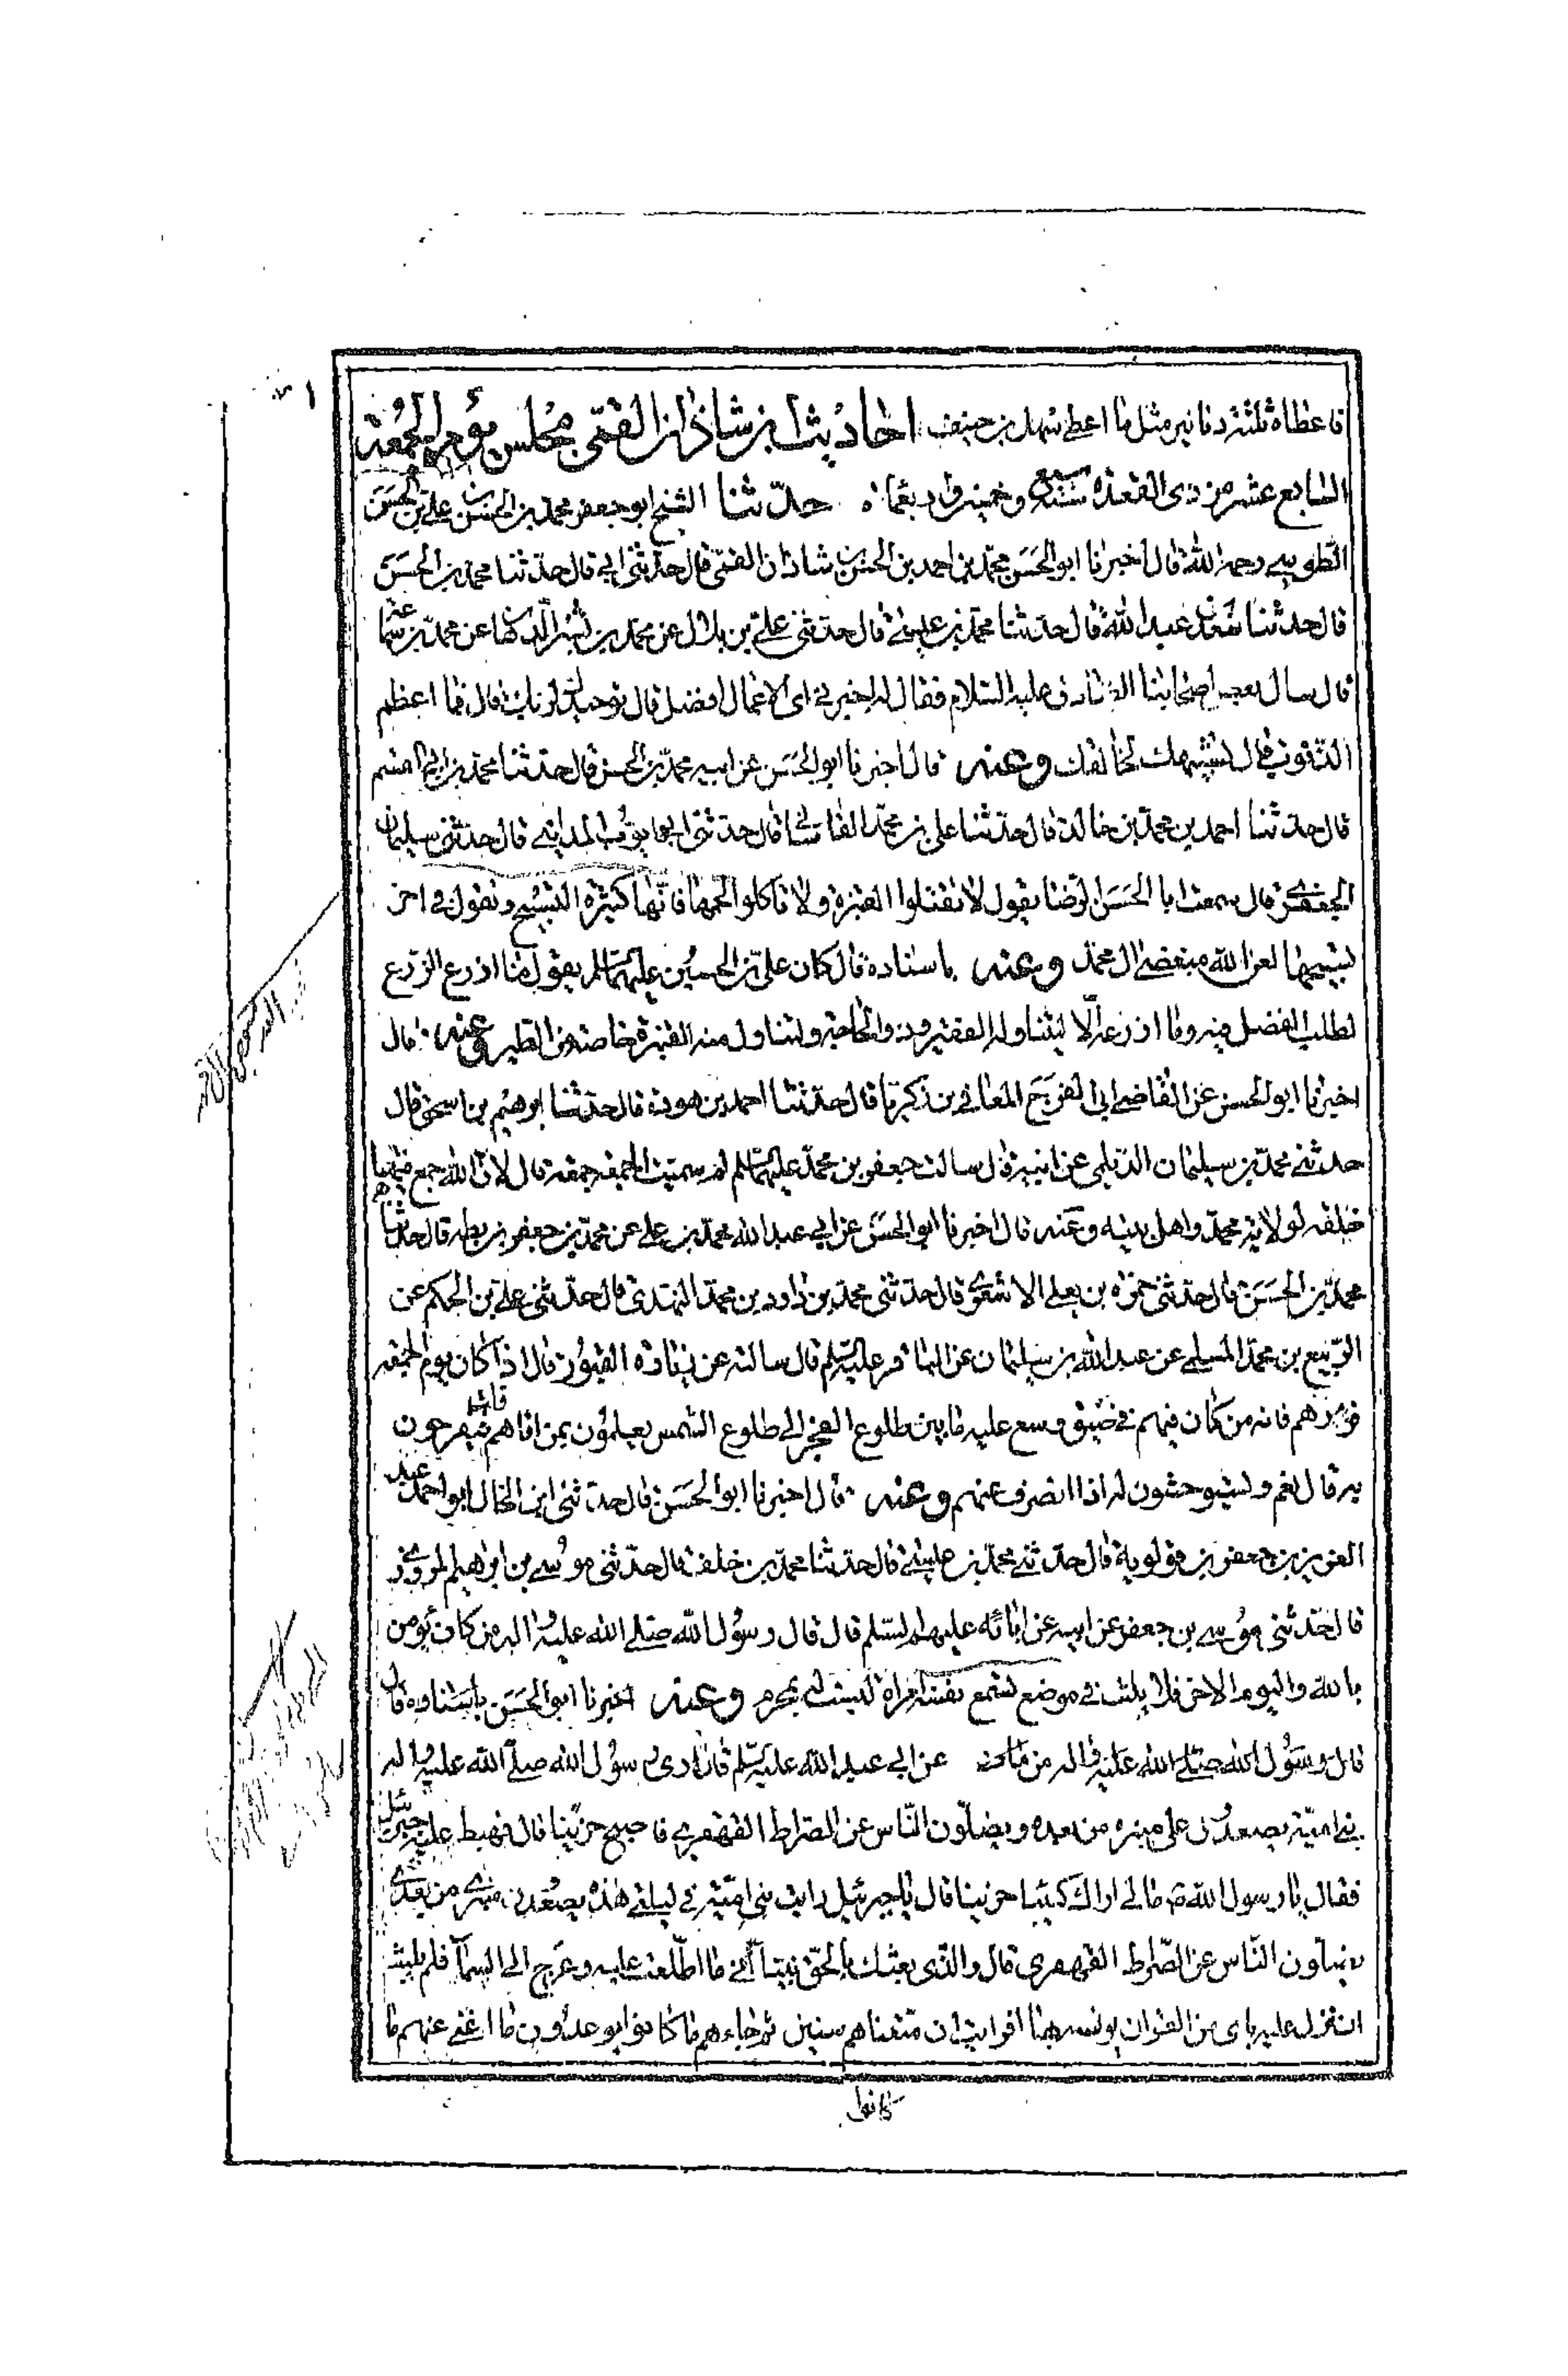 فاعطاه ثلثة دنانير مثل ما اعطى سهل بن حنيف احاديث ابن شاذان القمى مجلس يوم الجمعة
السابع عشر من ذى القعدة سنة سبع وخمسين واربعمائه حدّثنا الشيخ ابو جعفر محمد بن الحسن بن على بن الحسن
الطوسى رحمه الله قال اخبرنا ابو الحسن محمّد بن احمد بن الحسن بن شاذان القمّى قال حدّثنى ابى قال حدّثنا محمد بن الحسن
قال حدثنا سعد بن عبد الله قال حدثنا محمّد بن عيسى قال حدثنى علىّ بن بلال عن محمد بن بشر الدهان عن محمّد بن سماعة
قال سال بعض اصحابنا الصّادق عليه السّلام فقال له اخبرنى اى الاعمال افضل قال توحيدك لربك قال فما اعظم
الذّنوب قال تشبيهك لخالقك وعنه قال اخبرنا ابو الحسن عن ابيه محمّد بن الحسن قال حدّثنا محمّد بن ابى القسم
قال حدّثنا احمد بن محمّد بن خالد قال حدّثنا على بن محمّد القاسانى قال حدّثنى ابو ايّوب المدائنى قال حدّثنى سليمان
الجعفرى قال سمعت ابا الحسن الرّضا يقول لا تقتلوا القنبرة ولا تاكلوا لحمها فانّها كثيرة التسبيح وتقول فى اخر
تسبيحها لعن الله مبغضى ال محمّد وعنه باسناده قال كان علىّ بن الحسين عليهما السلم يقول ما ازرع الزّرع
لطلب الفضل فيه وما ازرعه الّا ليتناوله الفقير وذو الحاجة ولتناول منه القنبرة خاصة من الطير وعنه قال
اخبرنا ابو الحسن عن القاضى ابى الفرج المعافى بن زكريّا قال حدّثنا احمد بن هوذة قال حدّثنا ابرهيم بن اسحق قال
حدثنى محمّد بن سليمان الديلمى عن ابيه قال سالت جعفر بن محمّد عليهما السلم لم سميّت الجمعة جمعة قال لانّ الله جمع فيها
خلقه لولاية محمّد واهل بيته وعنه قال اخبرنا ابو الحسن عن ابى عبد الله محمّد بن على عن محمّد بن جعفر بن بطه قال حدّثنا
محمّد بن الحسن قال حدّثنى حمزه بن يعلى الاشعرى قال حدّثنى محمّد بن داود بن محمّد النهدى قال حدّثنى على بن الحكم عن
الرّبيع بن محمّد المسلى عن عبد الله بن سليمان عن الباقر عليه السّلم قال سالته عن زيارة القبور قال اذا كان يوم الجمعة
فزرهم فانه من كان فيهم فى ضيق وسع عليه ما بين طلوع الفجر الى طلوع الشمس يعلمون بمن اتاهم فيفرحون
به قال نعم ويستوحشون له اذا انصرف عنهم وعنه قال اخبرنا ابو الحسن قال حدّثنى ابن الخال ابو احمد عبد
العزيز بن جعفر بن قولويه قال حدّثنى محمّد بن عيسى قال حدّثنا محمّد بن خلف قال حدّثنى موسى بن ابراهيم المروزى
قال حدّثنى موسى بن جعفر عن ابيه عن ابائه عليهم السّلم قال قال رسول الله صلى الله عليه واله من كان يؤمن
بالله واليوم الاخر فلا يبيت فى موضع تسمع نفسه امراة ليست له بمحرم وعنه اخبرنا ابو الحسن باسناده قال
قال رسول الله صلى الله عليه واله من مات عن ابى عبد الله عليه السّلم قال ارى رسول الله صلّى الله عليه واله
بنى اميّة يصعدون على منبره من بعده ويضلّون النّاس عن الصّراط القهقرى فاصبح حزينا قال فهبط عليه جبرئيل
فقال يا رسول الله ص مالى اراك كئيبا حزينا قال يا جبرئيل رايت بنى اميّة فى ليلتى هذه يصعدون منبرى من بعدى
يضلون النّاس عن الصّراط القهقرى قال والذى بعثك بالحقّ نبيّا انّى ما اطلعت عليه وعرج الى السماء فلم يلبث
ان نزل عليه باى من القران يونسه بها افرايت ان متعناهم سنين ثم جاءهم ما كانوا يوعدون ما اغنى عنهم ما
كانوا